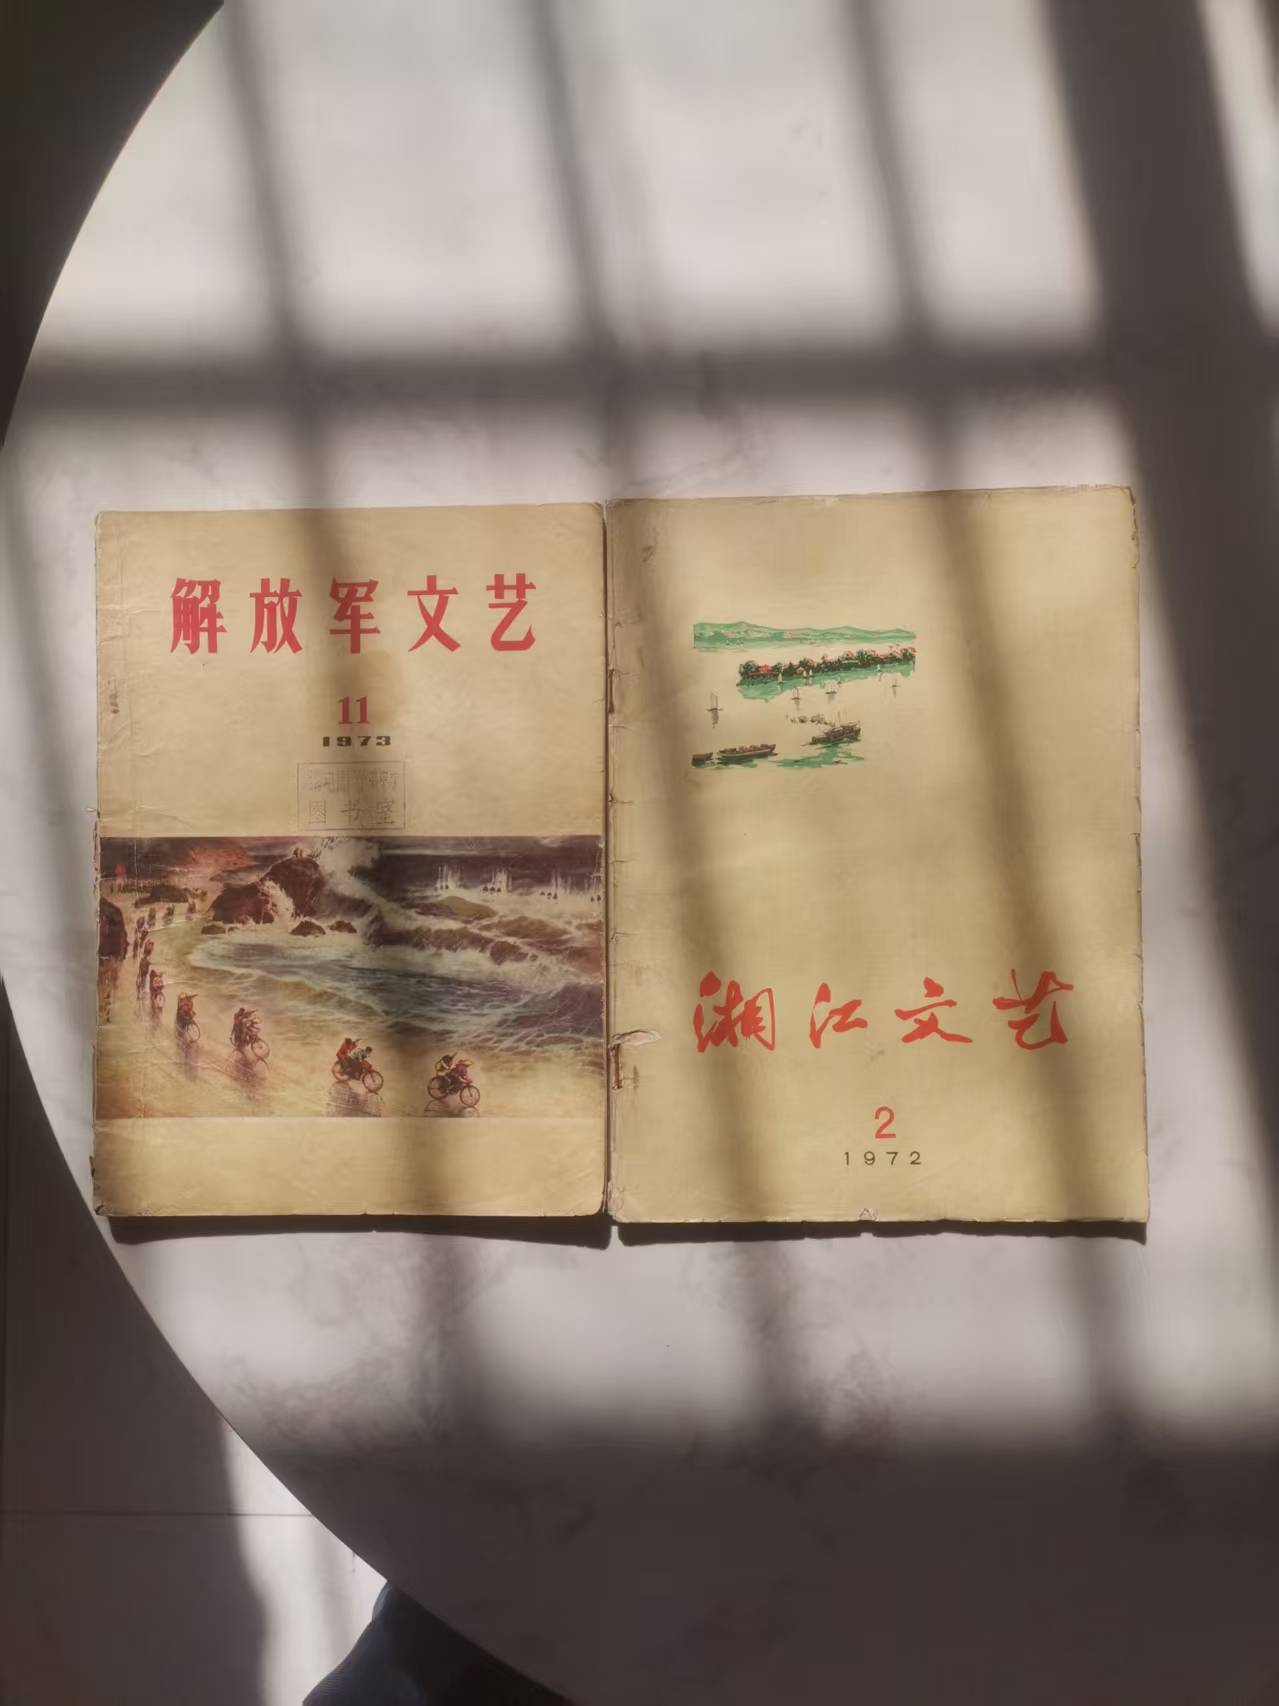 解放军文艺
11
1973
图书室
湘江文艺
2
1972